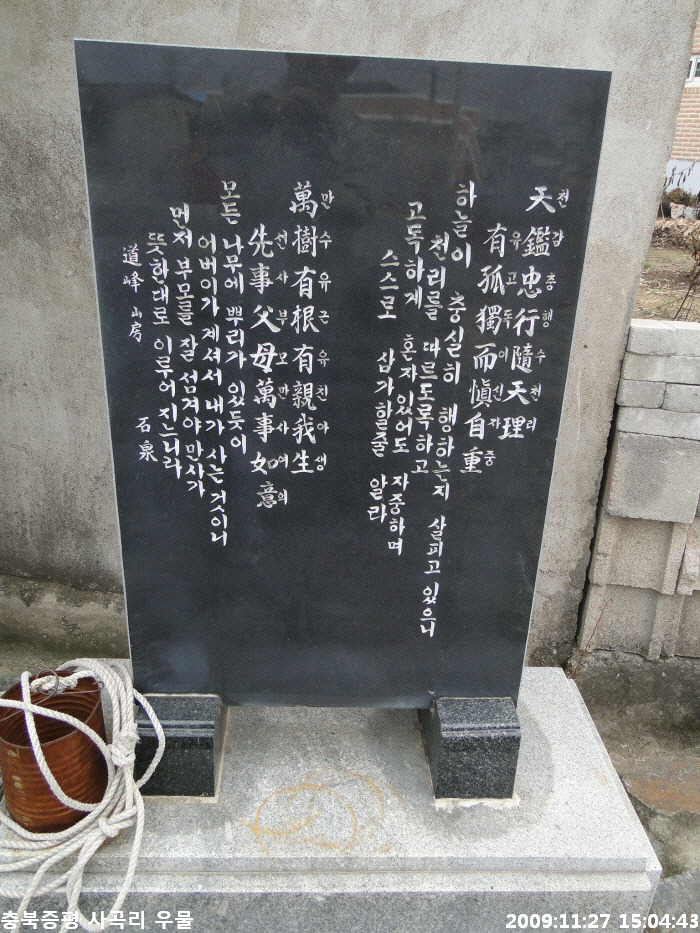 天鑑忠行隨天理
천감충행수천리
有孤獨而愼自重
유고독이신자중
하늘이 충실히 행하는지 살피고 있으니
천리를 따르도록하고
고독하게 혼자있어도 자중하며
스스로 삼가할줄 알라
萬樹有根有親我生
만수유근유친아생
先事父母萬事如意
선사부모만사여의
모든 나무에 뿌리가 있듯이
어버이가 계셔서 내가 사는 것이니
먼저 부모를 잘 섬겨야 만사가
뜻한대로 이루어 지느니라
道峰山房 石泉
충북증평 사곡리 우물
2009:11:27 15:04:43